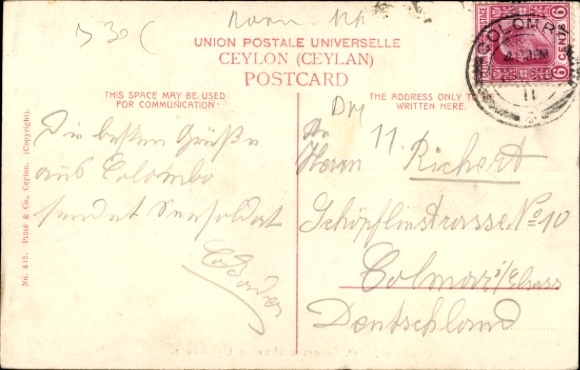 UNION POSTALE UNIVERSELLE
CEYLON (CEYLAN)
POSTCARD
THIS SPACE MAY BE USED
FOR COMMUNICATION
THE ADDRESS ONLY TO
WRITTEN HERE.
POSTAGE
6 CENTS 6
COLOMB
11
No. 442. Plâté & Co., Ceylon. (Copyright).
Die besten Grüße
aus Colombo
sendet
An
Herrn Richert
11.
Schöpflinstrasse No 10
Colmar i/Elsass
Deutschland